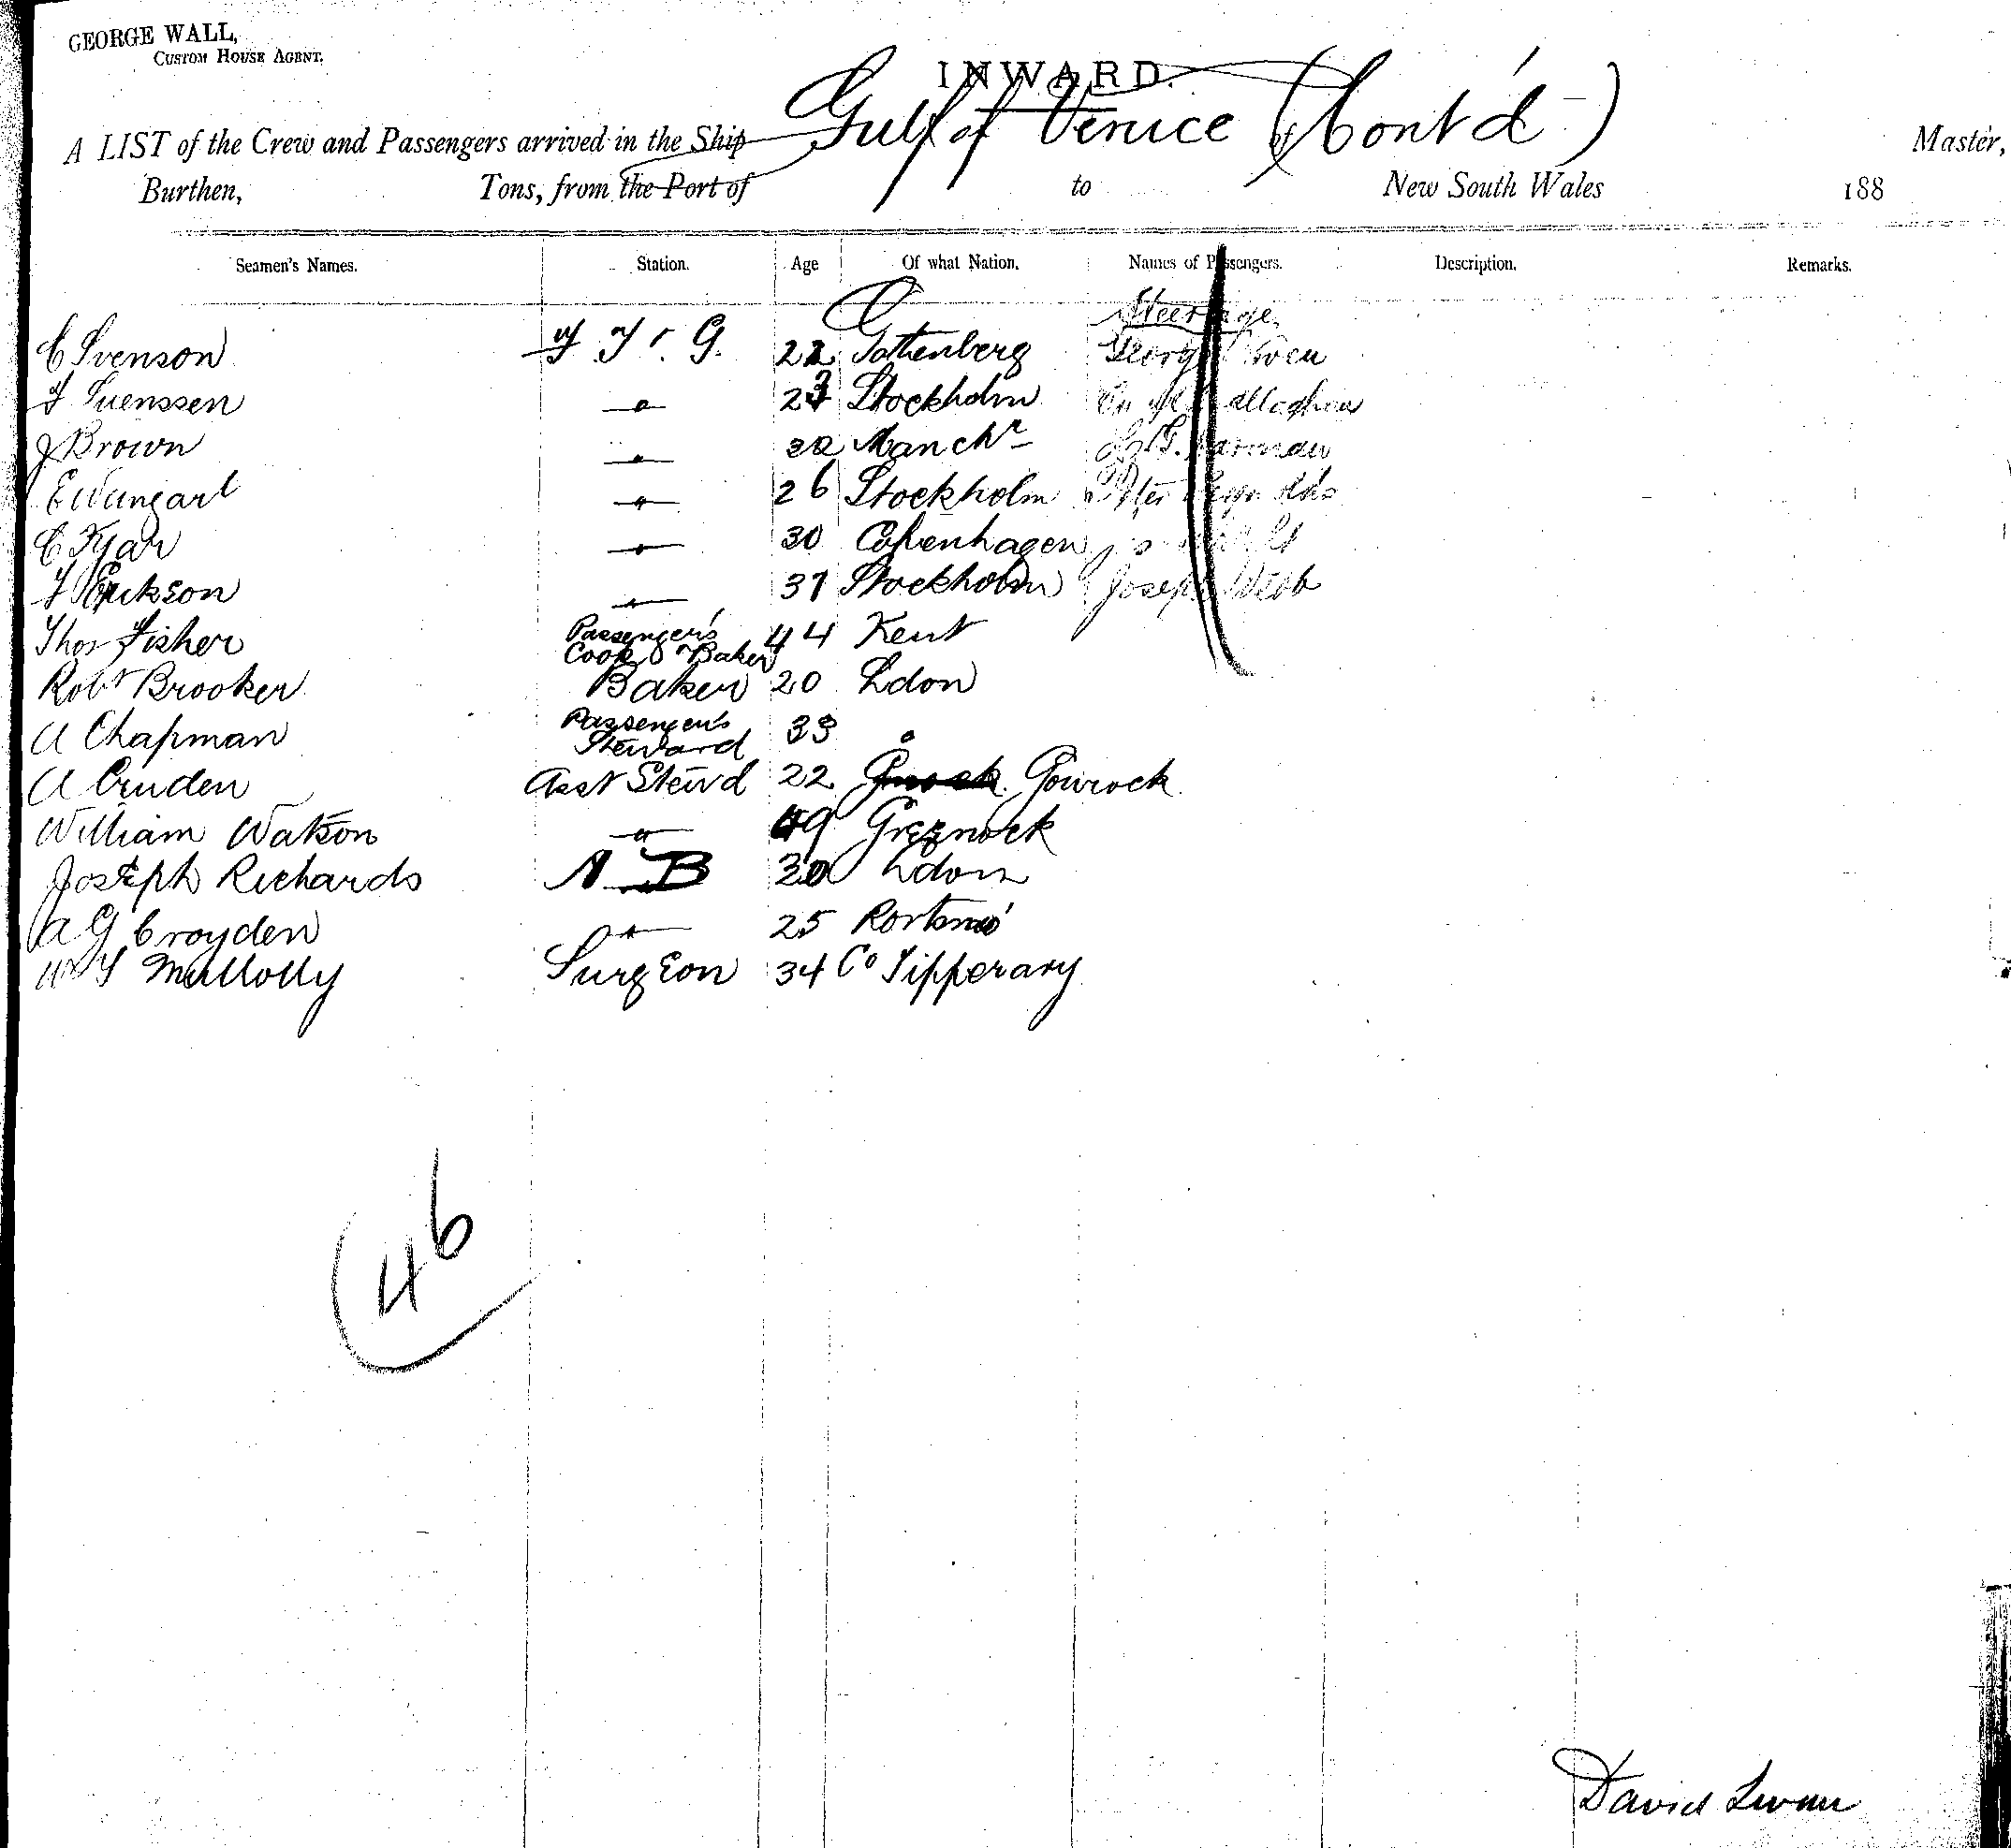 GEORGE WALL,
CUSTOM HOUSE AGENT.
INWARD.
A LIST of the Crew and Passengers arrived in the Ship Gulf of Venice (Cont'd) of Master,
Burthen, Tons, from the Port of to New South Wales 188
Seamen's Names. Station. Age Of what Nation. Names of Passengers. Description. Remarks.
Steerage
C Svenson F & G. 22 Gottenberg George Owen
F Suenssen " 23 Stockholm
J Brown " 32 Manchr
" 26 Stockholm Peter Reynolds
C Kjar " 30 Copenhagen
F Erikson " 31 Stockholm Joseph Webb
Thos Fisher Passenger's Cook & Baker 44 Kent
Robt Brooker Baker 20 Ldon
A Chapman Passenger's Steward 33
A Cruden Asst Stewd 22 Gourock
William Watson " 49 Greenock
Joseph Richards A B 30 Ldon
A G Croyden " 25
Mullolly Surgeon 34 Co Tipperary
46
David Swan